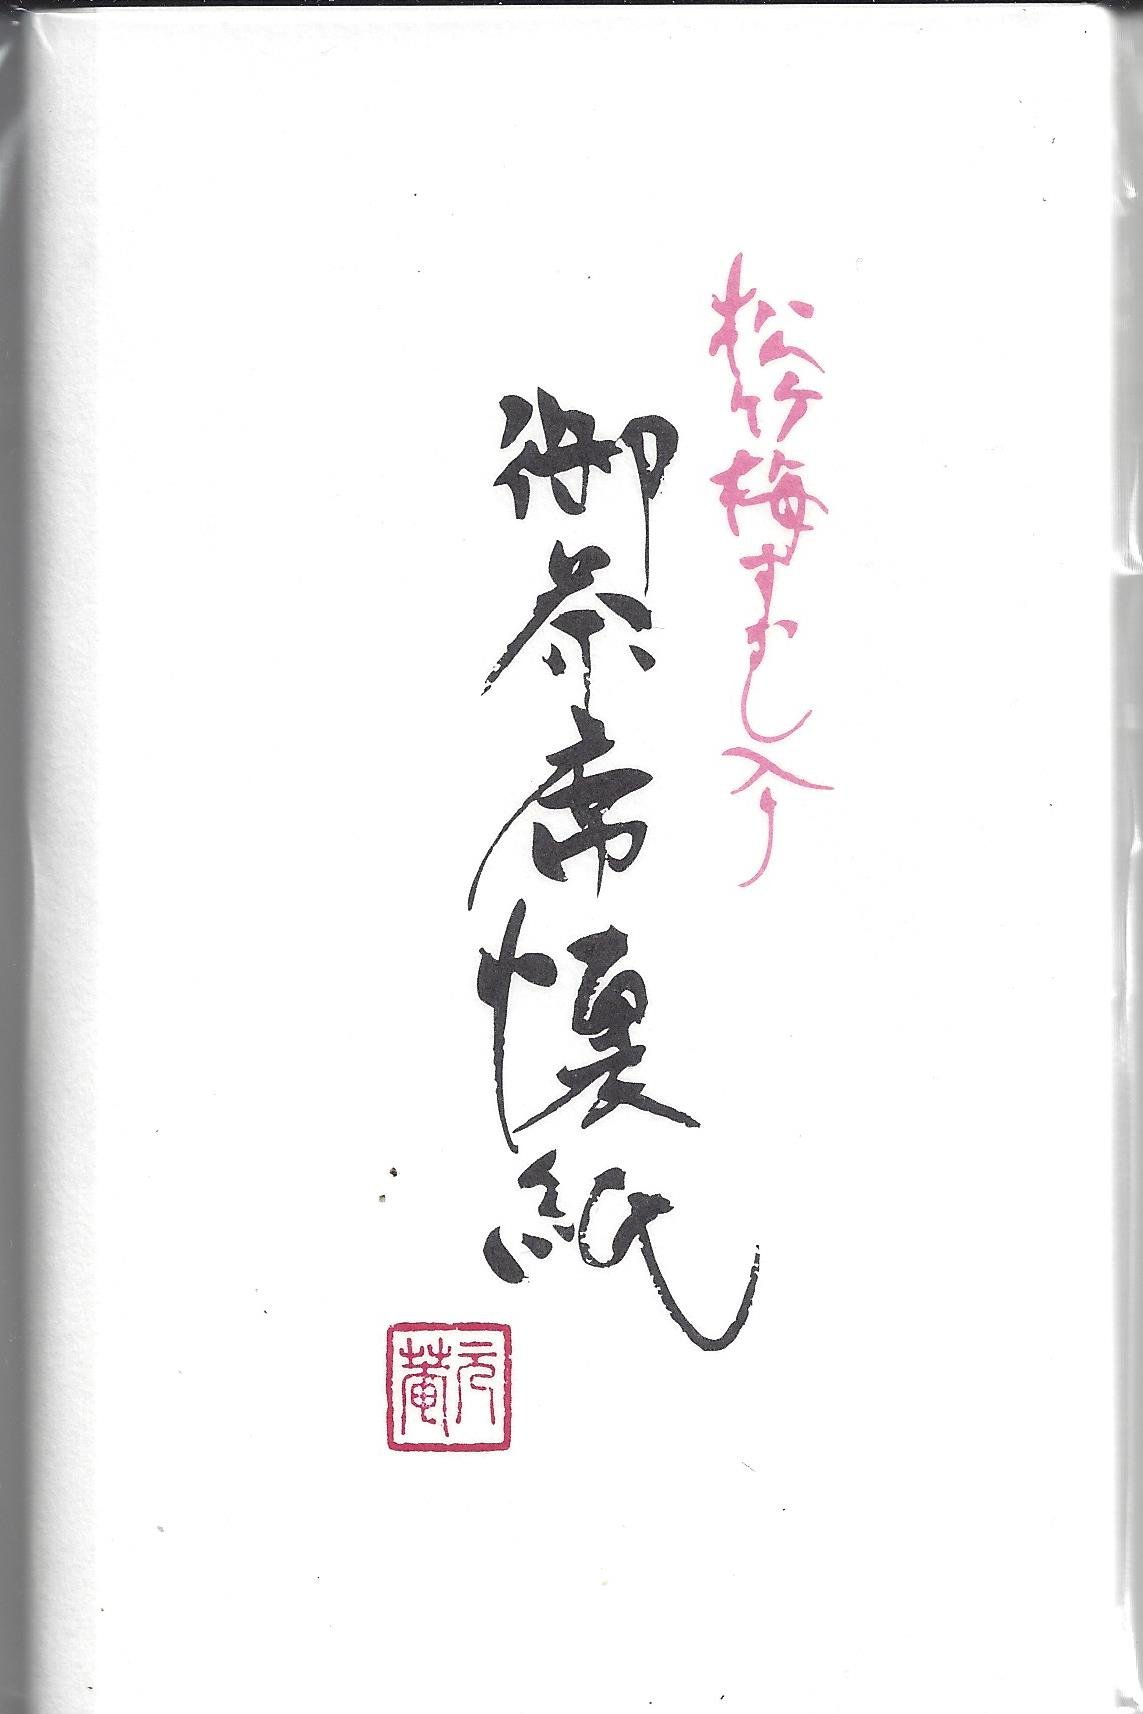 松竹梅すかし入り
御茶席懐紙
元庵